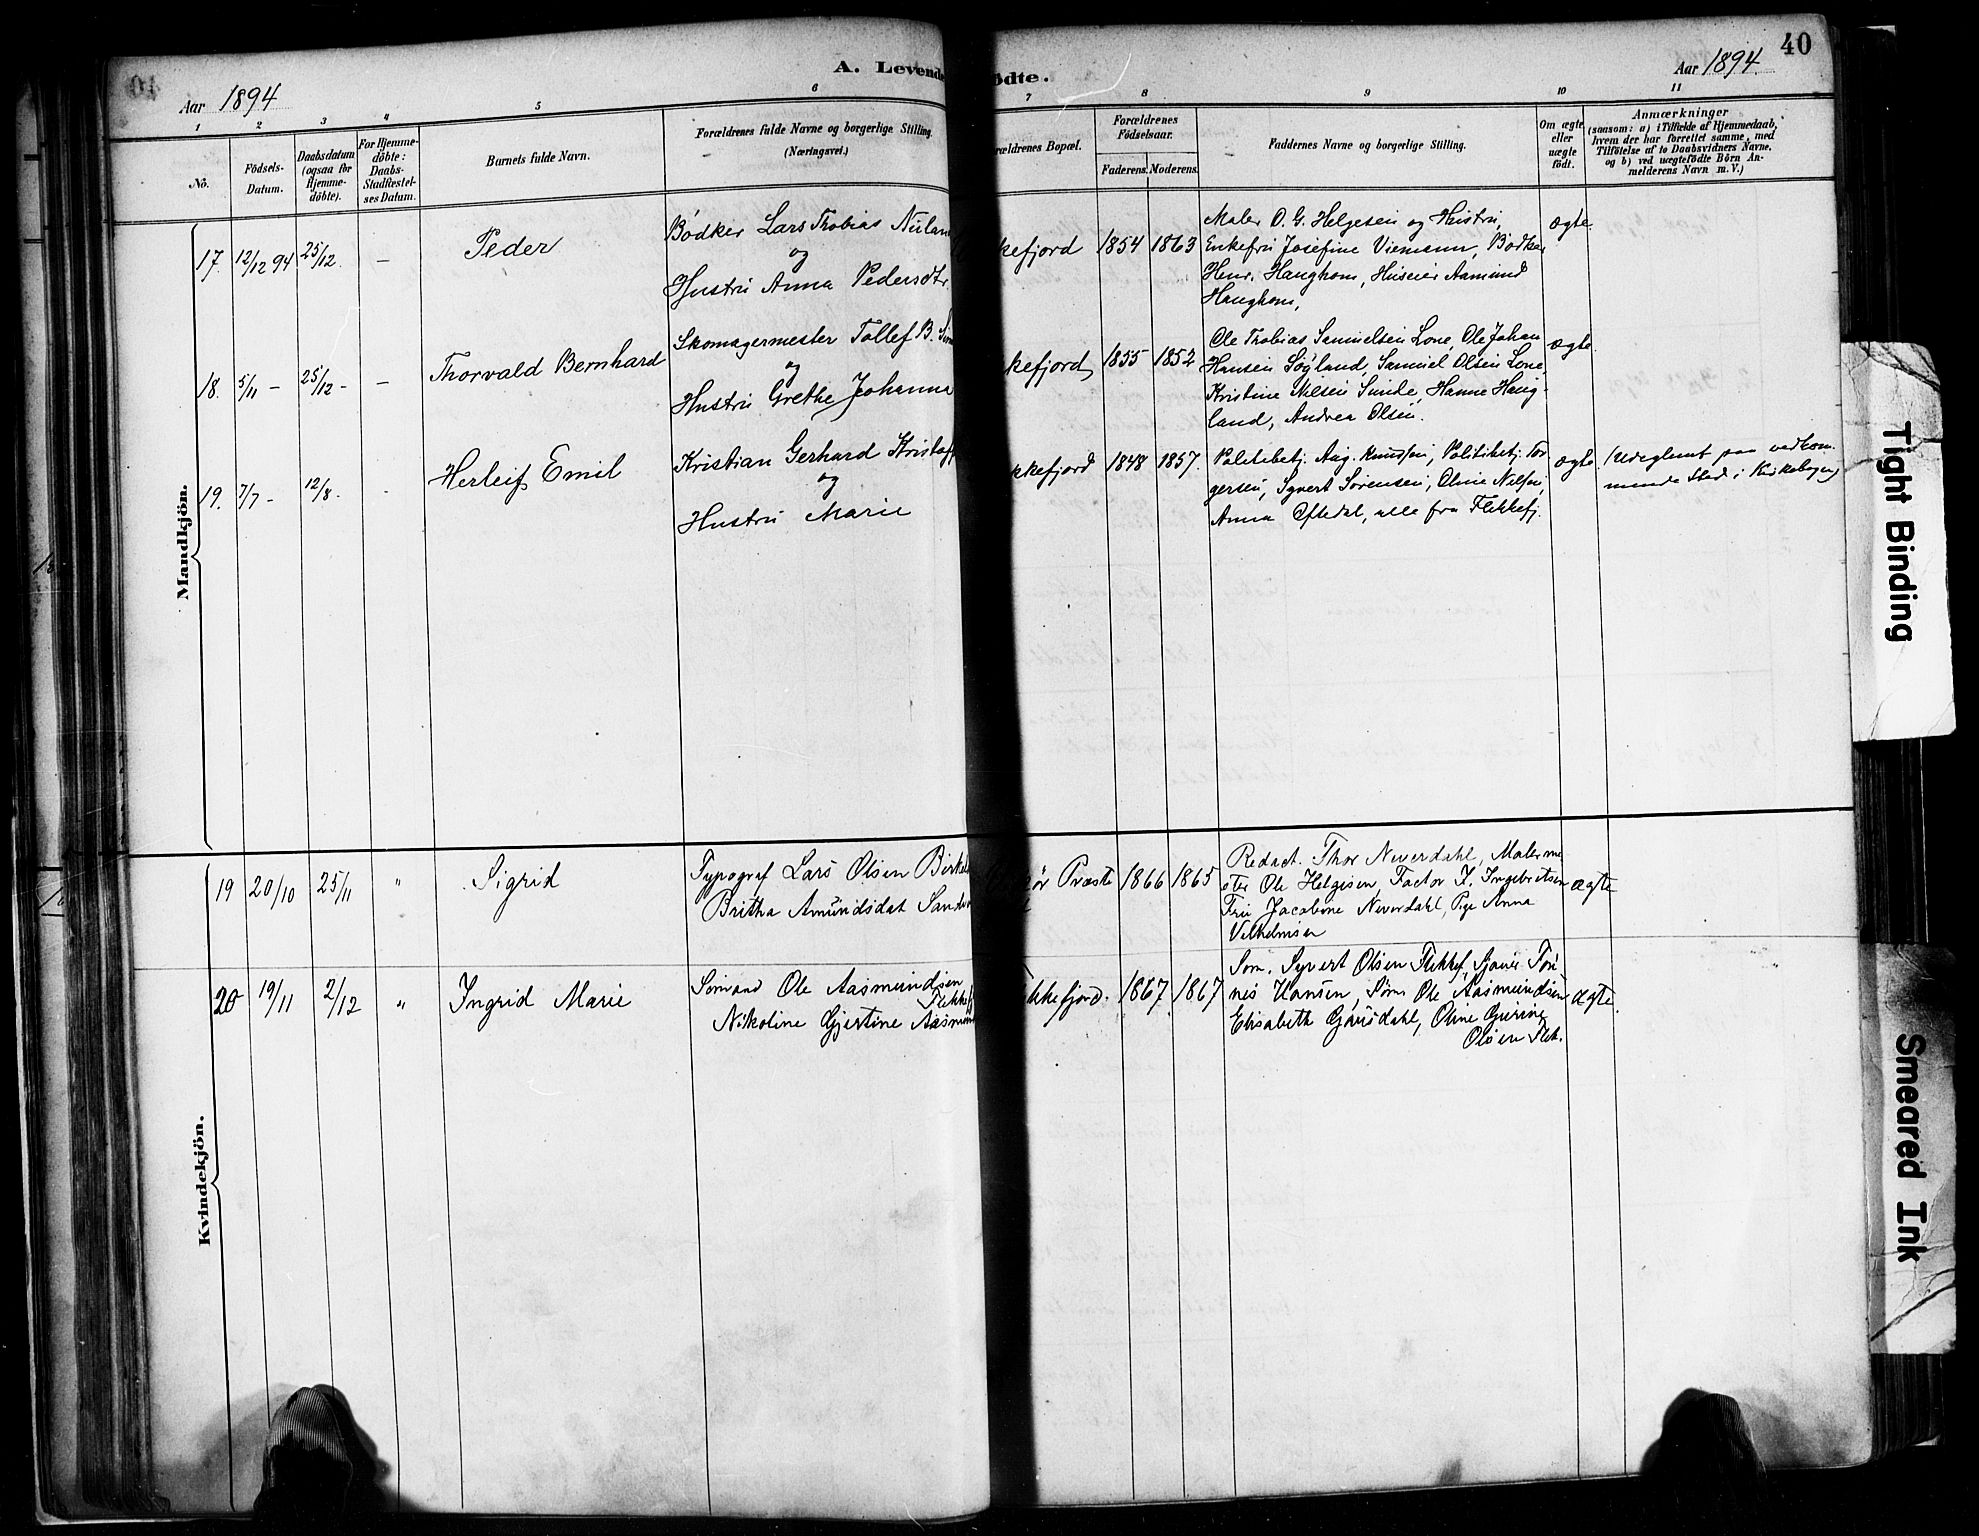 40
A. Levende ødte.
Aar 1894
Aar 1894
1 2 3 4 5 6 7 8 9 10 11
No.
Födsels-
Datum.
Daabsdatum
(ogsaa for
Hjemme-
döbte).
For Hjemme-
döbte:
Daabs-
Stadfæstel-
ses Datum.
Barnets fulde Navn.
Forældrenes fulde Navne og borgerlige Stilling.
(Næringsvei.)
rældrenes Bopæl.
Forældrenes
Födselsaar.
Faderens. Moderens.
Faddernes Navne og borgerlige Stilling.
Om ægte
eller
uægte
födt.
Anmærkninger
(saasom: a) i Tilfælde af Hjemmedaab,
hvem der har forrettet samme, med
Tilföielse af to Daabsvidners Navne,
og b) ved uægtefödte Börn An-
melderens Navn m. V.)
Mandkjön.
17. 12/12 94 25/12. – Peder
Bödker Lars Tobias Nuland
og
Hustru Anna Pedersdtr
kefjord 1854 1863
Maler O. G. Helgesen og Hustru,
Enkefru Josefine Viemann, Bødker
Henr. Haughom, Huseier Aamund
Haughom,
ægte
18. 5/11 – 25/12 – – Thorvald Bernhard
Skomagermester Tollef B.
og
Hustru Grethe Johanna
kefjord 1855 1852
Ole Tobias Samuelsen Lone, Ole Johan
Hansen Søyland, Samuel Olsen Lone,
Kristine Nilsen Sunde, Hanne Haug-
land, Andrea Olsen.
ægte
19. 7/7 – 12/8. - Herleif Emil
Kristian Gerhard Kristoff
og
Hustru Marie
kkefjord 1848 1857.
Politibetj. Aug. Knudsen, Politibetj. Tor
gersen, Syvert Sørensen, Oline Nilsen,
Anna Oftedal, alle fra Flekkefj.
ægte
(Udeglemt paa vedkom-
mende Sted i Kirkebogen)
Kvindekjön.
19 20/10 25/11 " Sigrid
Typograf Lars Olsen Birkel
Britha Amundsdat Sand
ør Præste 1866 1865
Redact. Thor Neverdahl, Malerme
ster Ole Helgesen, Factor I. Ingebretsen
Fru Jacobine Neverdahl, Pge Anna
Vilhelmsen
ægte
20 19/11 2/12 " Ingrid Marie
Sømand Ole Aasmundsen
Flekkefj
Nikoline Gjertine Aasmun
kkefjord. 1867 1867
Søm. Syvert Olsen Flekkef, Sjaues Tøn
nes Hansen, Søm. Ole Aasmundsen
Elisabeth Gausdahl, Oline Gurine
Olsen Flek.
ægte.
Tight Binding
Smeared Ink